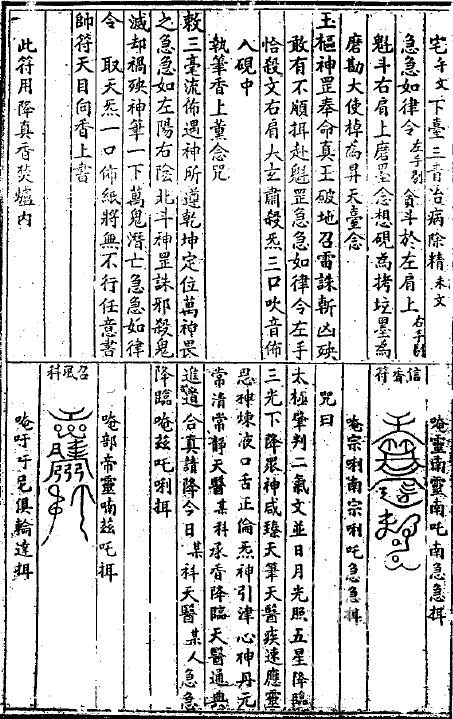 宅午文 下臺三音治病除精 未文
急急如律令 左手剔 貪斗於左肩上 右手
魁斗右肩上磨墨念想硯為拷坛墨為
磨勘大使棹為昇天臺念
玉樞神罡奉命真王破地召雷誅斬凶殃
敢有不順揖赴魁罡急急如律令左手
恰殺文右肩大玄肅殺炁三口吹音佈
入硯中
執筆香上薰念咒
敕三毫流佈遇神所遵乾坤定位萬神畏
之急急如左陽右陰北斗神罡誅邪殺鬼
滅却禍殃神筆一下萬鬼潛亡急急如律
令 取天炁一口佈紙將無不行任意書
師符天目向香上書
此符用降真香焚爐內
唵靈喃靈南吒南急急揖
信香符
唵宗唎南宗唎吒急急揖
咒曰
太極肇判二氣文並日月光照五星降臨
三光下降眾神咸臻天筆天醫疾速應靈
思神煉液口舌正倫炁神引津心神丹元
常清常靜天醫某科承香降臨天醫通典
進道合真請降今日某科天醫某人急急
降臨唵茲吒唎揖
唵部帝靈喃茲吒揖
召風科
唵吽吽兄俱輪達揖